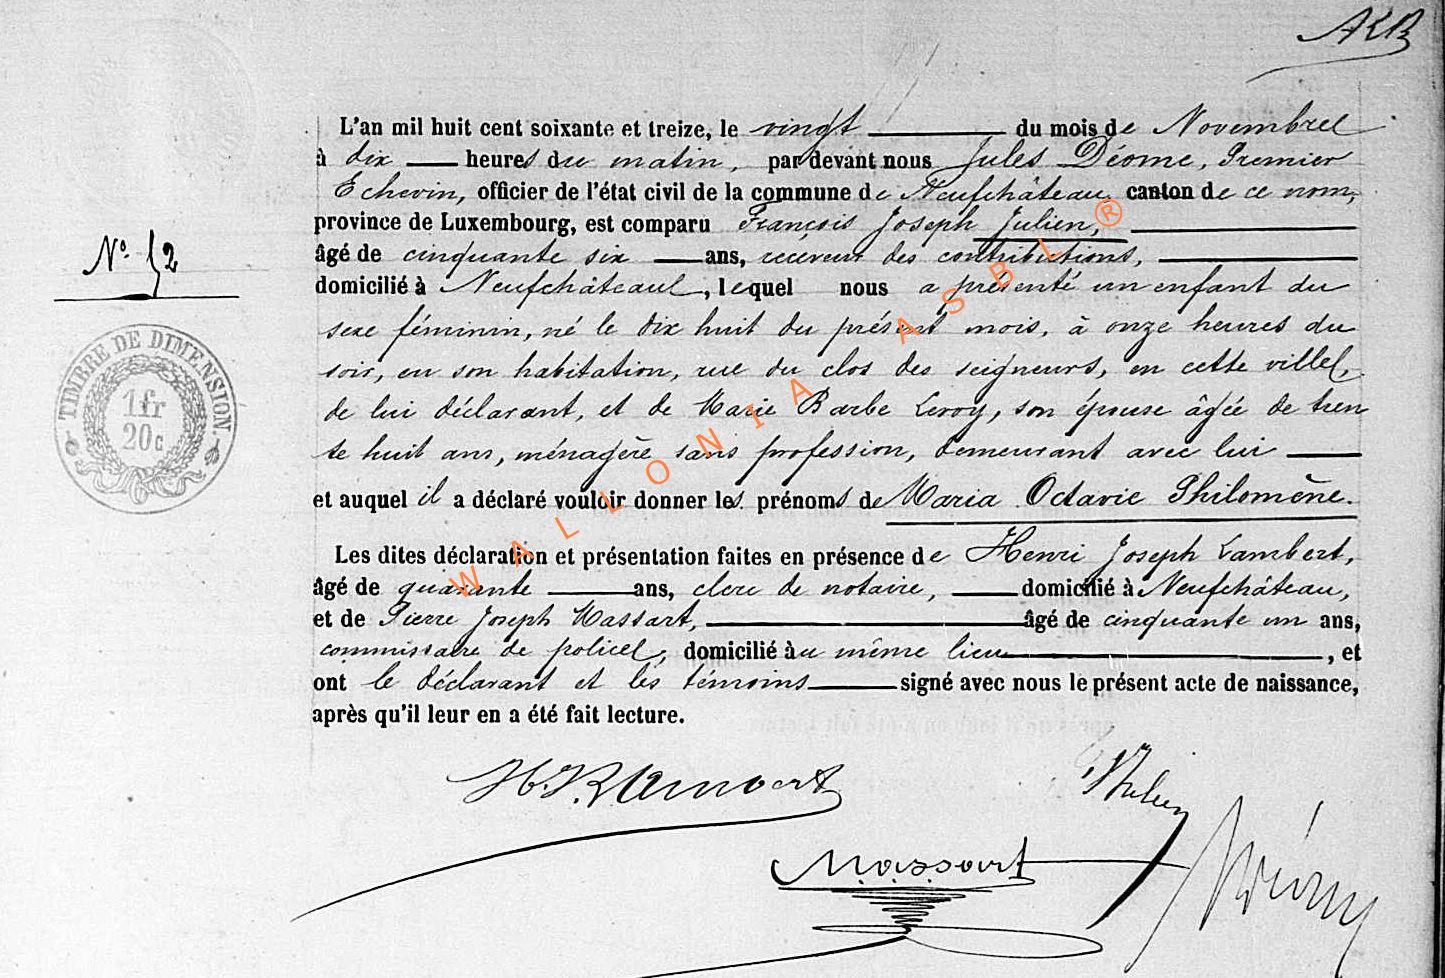 L'an mil huit cent soixante et treize, le vingt du mois de Novembre
à dix heures du matin, par devant nous Jules Déome, Premier
Echevin, officier de l'état civil de la commune de Neufchâteau, canton de ce nom,
province de Luxembourg, est comparu François Joseph Julien, ®
âgé de cinquante six ans, receveur des contributions,
domicilié à Neufchâteau, lequel nous a présenté un enfant du
sexe féminin, né le dix huit du présent mois, à onze heures du
soir, en son habitation, rue du clos des seigneurs, en cette ville,
de lui déclarant, et de Marie Barbe Leroy, son épouse âgée de tren
te huit ans, ménagère sans profession, demeurant avec lui
et auquel il a déclaré vouloir donner les prénoms de Maria Octavie Philomène.
Les dites déclaration et présentation faites en présence de Henri Joseph Lambert,
âgé de quarante ans, clerc de notaire, domicilié à Neufchâteau,
et de Pierre Joseph Massart, âgé de cinquante un ans,
commissaire de police, domicilié au même lieu, et
ont le déclarant et les témoins signé avec nous le présent acte de naissance,
après qu'il leur en a été fait lecture.
N° 52
TIMBRE DE DIMENSION.
1fr
20c
WALLONIA ASBL
H.J. Lambert
Julien
Massart